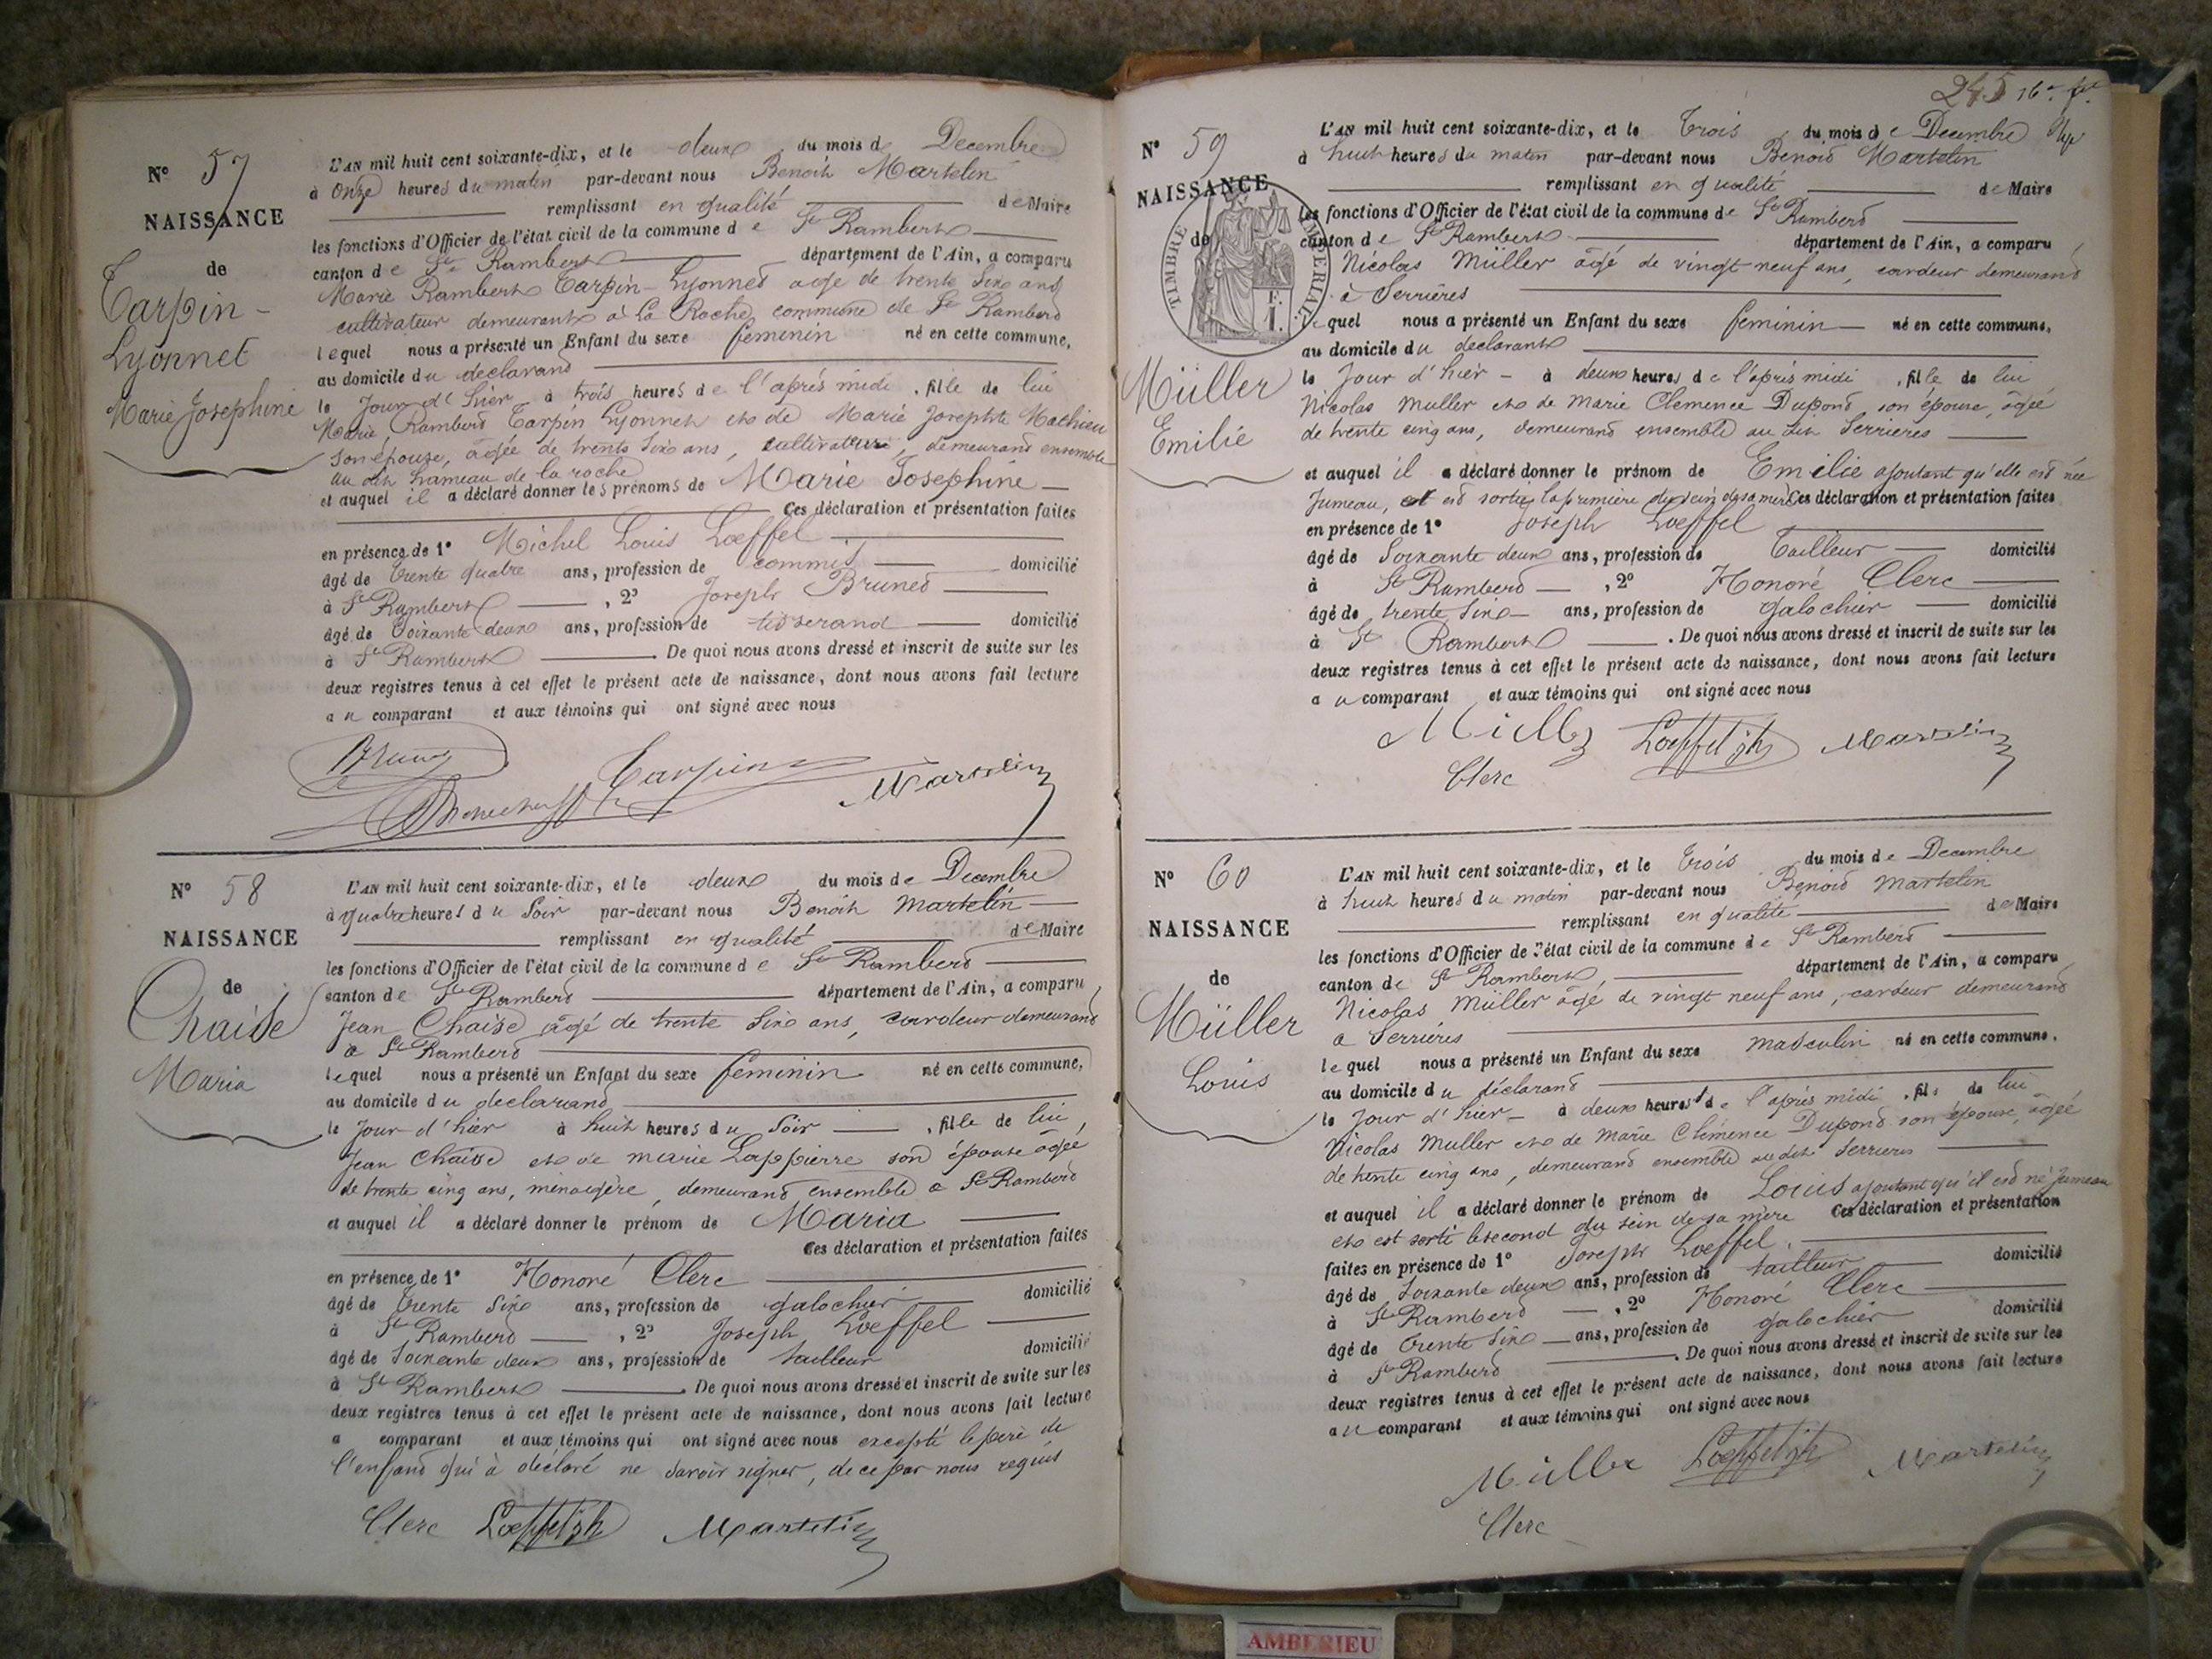 N° 57
NAISSANCE
de
Tarpin-
Lyonnet
Marie Josephine
L'AN mil huit cent soixante-dix, et le deux du mois de Decembre
à onze heures du matin par-devant nous Benoit Martelin
remplissant en qualité de Maire
les fonctions d'Officier de l'état civil de la commune de St Rambert
canton de St Rambert département de l'Ain, a comparu
Marie Rambert Tarpin-Lyonnet agé de trente six ans
cultivateur demeurant à La Roche commune de St Rambert
lequel nous a présenté un Enfant du sexe feminin né en cette commune,
au domicile du declarant
le Jour d'hier à trois heures de l'après midi, fille de lui
Marie Rambert Tarpin Lyonnet et de Marie Josephte Mathieu
son épouse, agée de trente six ans, demeurant ensemble
au dit hameau de la roche
et auquel il a déclaré donner les prénoms de Marie Josephine
Ces déclaration et présentation faites
en présence de 1° Michel Louis Loeffel
âgé de trente quatre ans, profession de commis domicilié
à St Rambert, 2° Joseph Brunet
âgé de soixante deux ans, profession de tisserand domicilié
à St Rambert. De quoi nous avons dressé et inscrit de suite sur les
deux registres tenus à cet effet le présent acte de naissance, dont nous avons fait lecture
au comparant et aux témoins qui ont signé avec nous
Tarpin
Martelin
N° 58
NAISSANCE
de
Chaise
Maria
L'AN mil huit cent soixante-dix, et le deux du mois de Decembre
à quatre heures du Soir par-devant nous Benoit Martelin
remplissant en qualité de Maire
les fonctions d'Officier de l'état civil de la commune de St Rambert
canton de St Rambert département de l'Ain, a comparu
Jean Chaise agé de trente six ans, cardeur demeurant
a St Rambert
lequel nous a présenté un Enfant du sexe feminin né en cette commune,
au domicile du declarant
le Jour d'hier à huit heures du Soir, fille de lui
Jean Chaise et de marie Lappierre son épouse agée
de trente cinq ans, ménagère, demeurant ensemble a St Rambert
et auquel il a déclaré donner le prénom de Maria
Ces déclaration et présentation faites
en présence de 1° Honoré Clerc
âgé de trente six ans, profession de galochier domicilié
à St Rambert, 2° Joseph Loeffel
âgé de soixante deux ans, profession de tailleur domicilié
à St Rambert. De quoi nous avons dressé et inscrit de suite sur les
deux registres tenus à cet effet le présent acte de naissance, dont nous avons fait lecture
a comparant et aux témoins qui ont signé avec nous excepté le pere de
l'enfant qui à déclaré ne savoir signer, de ce par nous requis
Clerc Loeffel jh Martelin
245 16e ft
N° 59
NAISSANCE
de
TIMBRE IMPERIAL
Müller
Emilie
L'AN mil huit cent soixante-dix, et le trois du mois de Decembre
à huit heures du matin par-devant nous Benoit Martelin
remplissant en qualité de Maire
les fonctions d'Officier de l'état civil de la commune de St Rambert
canton de St Rambert département de l'Ain, a comparu
Nicolas Müller agé de vingt neuf ans, cardeur demeurant
à Serrières
lequel nous a présenté un Enfant du sexe feminin né en cette commune,
au domicile du declarant
le Jour d'hier à deux heures de l'après midi, fille de lui
Nicolas Muller et de Marie Clemence Dupond son épouse, agée
de trente cinq ans, demeurant ensemble au dit Serrieres
et auquel il a déclaré donner le prénom de Emilie ajoutant qu'elle est née
Jumeau, et est sortie la première du sein de sa mère Ces déclaration et présentation faites
en présence de 1° Joseph Loeffel
âgé de Soixante deux ans, profession de tailleur domicilié
à St Rambert, 2° Honoré Clerc
âgé de trente six ans, profession de galochier domicilié
à St Rambert. De quoi nous avons dressé et inscrit de suite sur les
deux registres tenus à cet effet le présent acte de naissance, dont nous avons fait lecture
au comparant et aux témoins qui ont signé avec nous
Loeffel jh Martelin
Clerc
N° 60
NAISSANCE
de
Müller
Louis
L'AN mil huit cent soixante-dix, et le trois du mois de Decembre
à huit heures du matin par-devant nous Benoit Martelin
remplissant en qualité de Maire
les fonctions d'Officier de l'état civil de la commune de St Rambert
canton de St Rambert département de l'Ain, a comparu
Nicolas Müller agé de vingt neuf ans, cardeur demeurant
a Serrières
lequel nous a présenté un Enfant du sexe masculin né en cette commune.
au domicile du déclarant
le Jour d'hier à deux heures de l'après midi, fils de lui
Nicolas Muller et de Marie Clémence Dupond son épouse, agée
de trente cinq ans, demeurant ensemble au dit Serrieres
et auquel il a déclaré donner le prénom de Louis ajoutant qu'il est né Jumeau
et est sorti le second du sein de sa mère Ces déclaration et présentation
faites en présence de 1° Joseph Loeffel
âgé de Soixante deux ans, profession de tailleur domicilié
à St Rambert, 2° Honoré Clerc
âgé de trente six ans, profession de galochier domicilié
à St Rambert. De quoi nous avons dressé et inscrit de suite sur les
deux registres tenus à cet effet le présent acte de naissance, dont nous avons fait lecture
au comparant et aux témoins qui ont signé avec nous
Müller Loeffel jh Martelin
Clerc
AMBERIEU